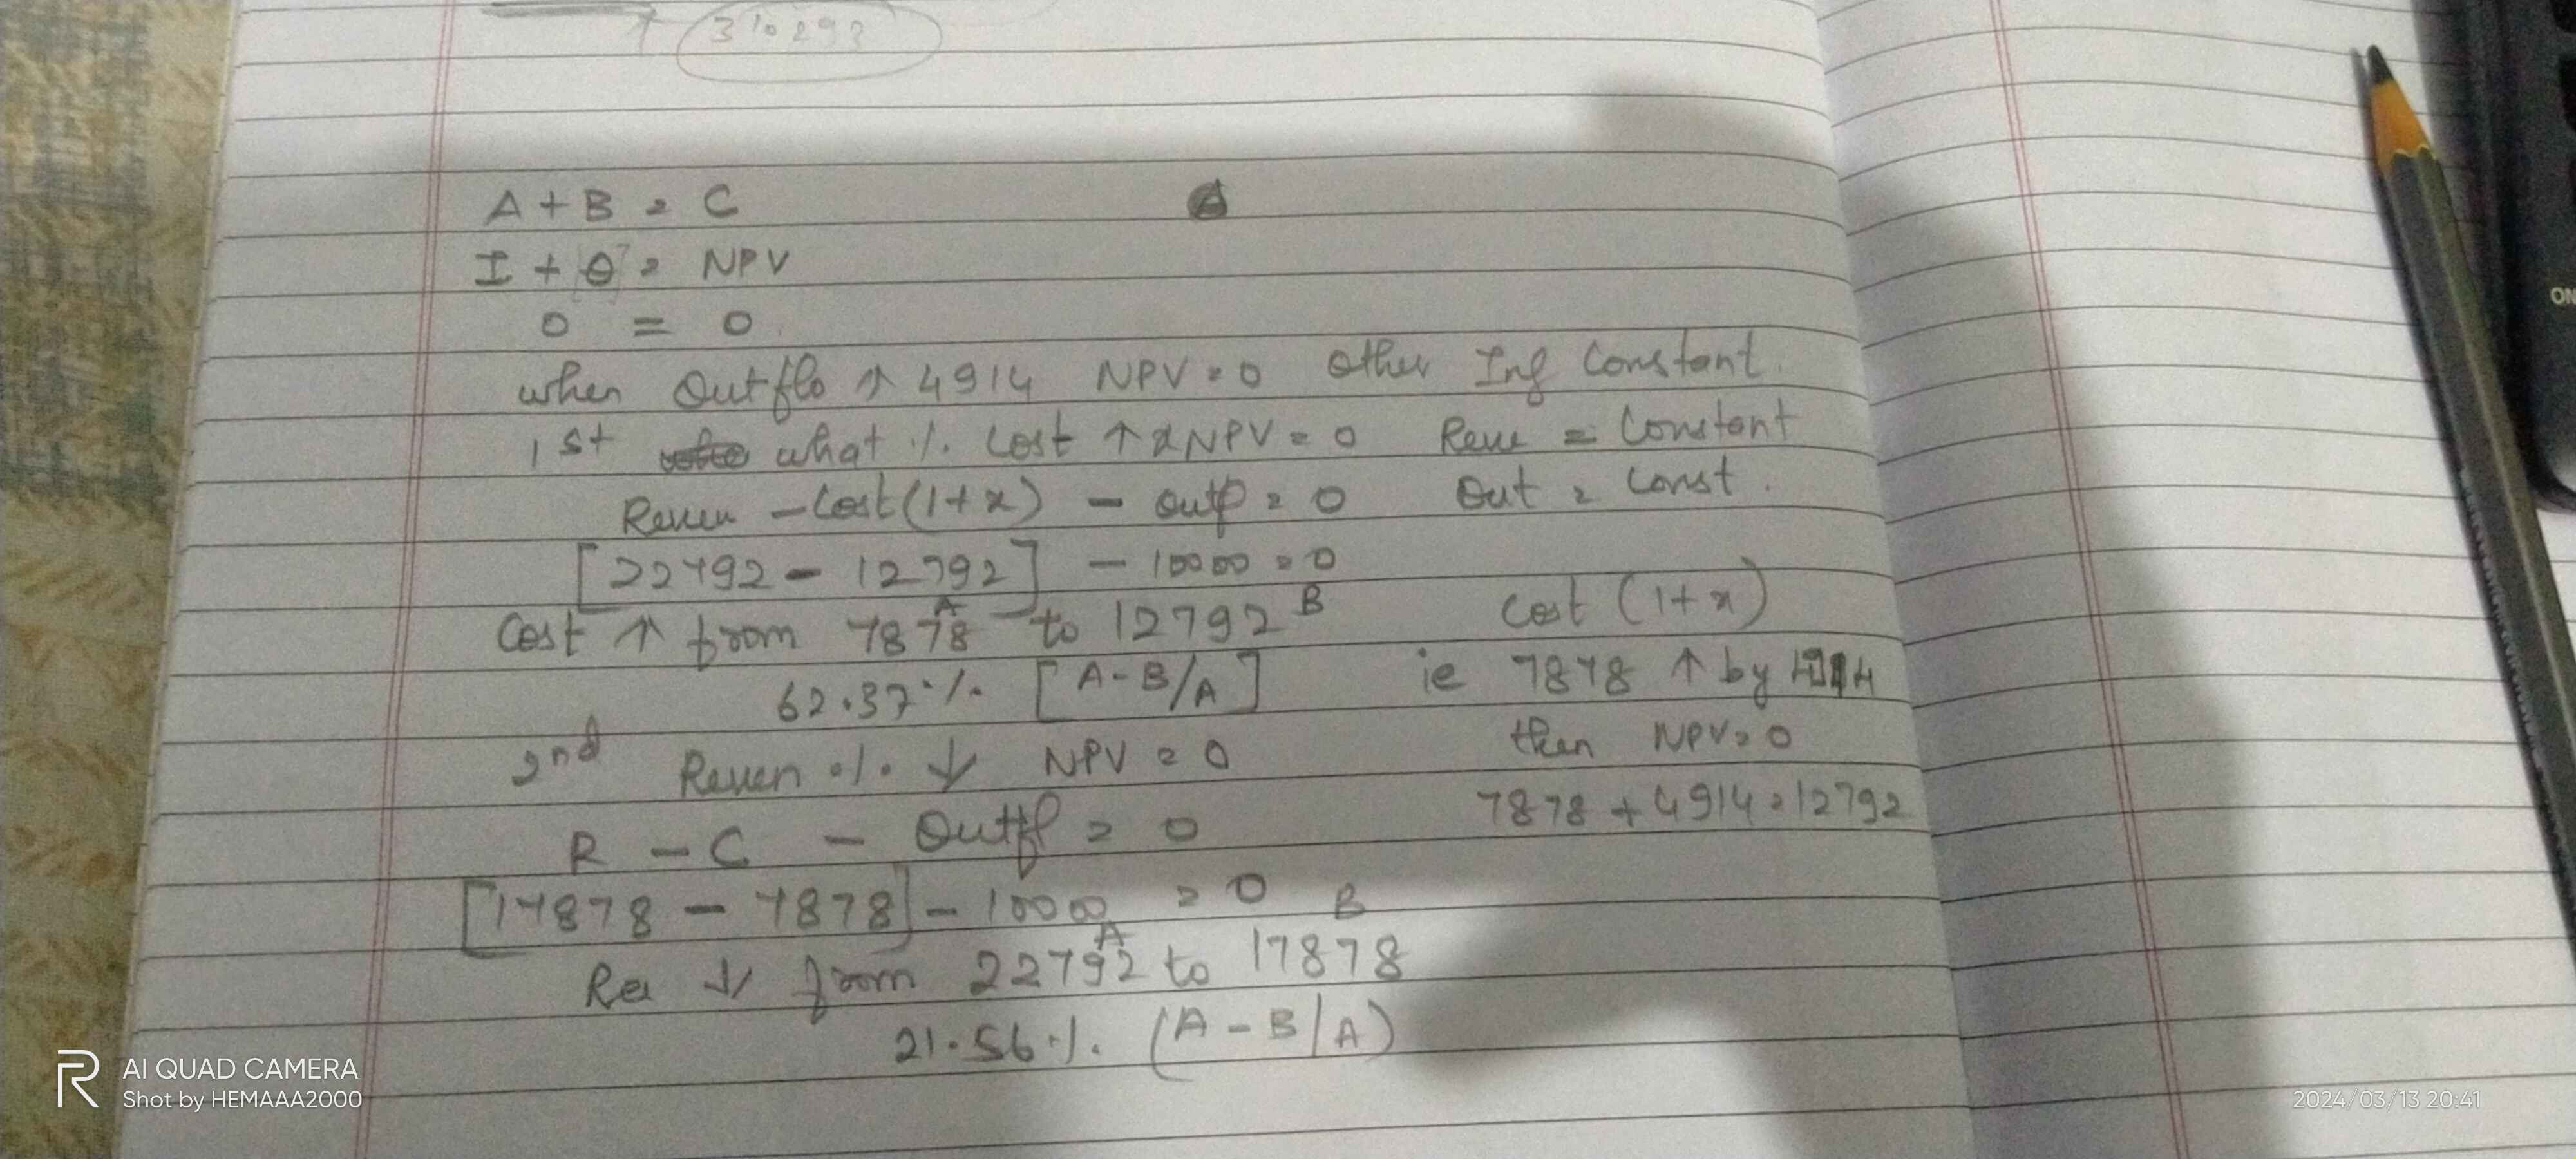 310293
A + B = C
I + [O] = NPV
0 = 0
when Outflo ↑ 4914 NPV = 0 Other Inf Constant.
1st what % Cost ↑ & NPV = 0 Reve = Constant
Reven - Cost (1+x) - outf = 0 Out = Const.
[22792 - 12792] - 10000 = 0
Cost ↑ from 7878 A to 12792 B Cost (1+x)
62.37% [A-B/A] ie 7878 ↑ by 4914
2nd Reven % ↓ NPV = 0 then NPV = 0
R - C - Outfl = 0 7878 + 4914 = 12792
[17878 - 7878] - 10000 = 0
Re ↓ from 22792 A to 17878 B
21.56% (A - B/A)
R AI QUAD CAMERA
Shot by HEMAAA2000
2024/03/13 20:41
ON